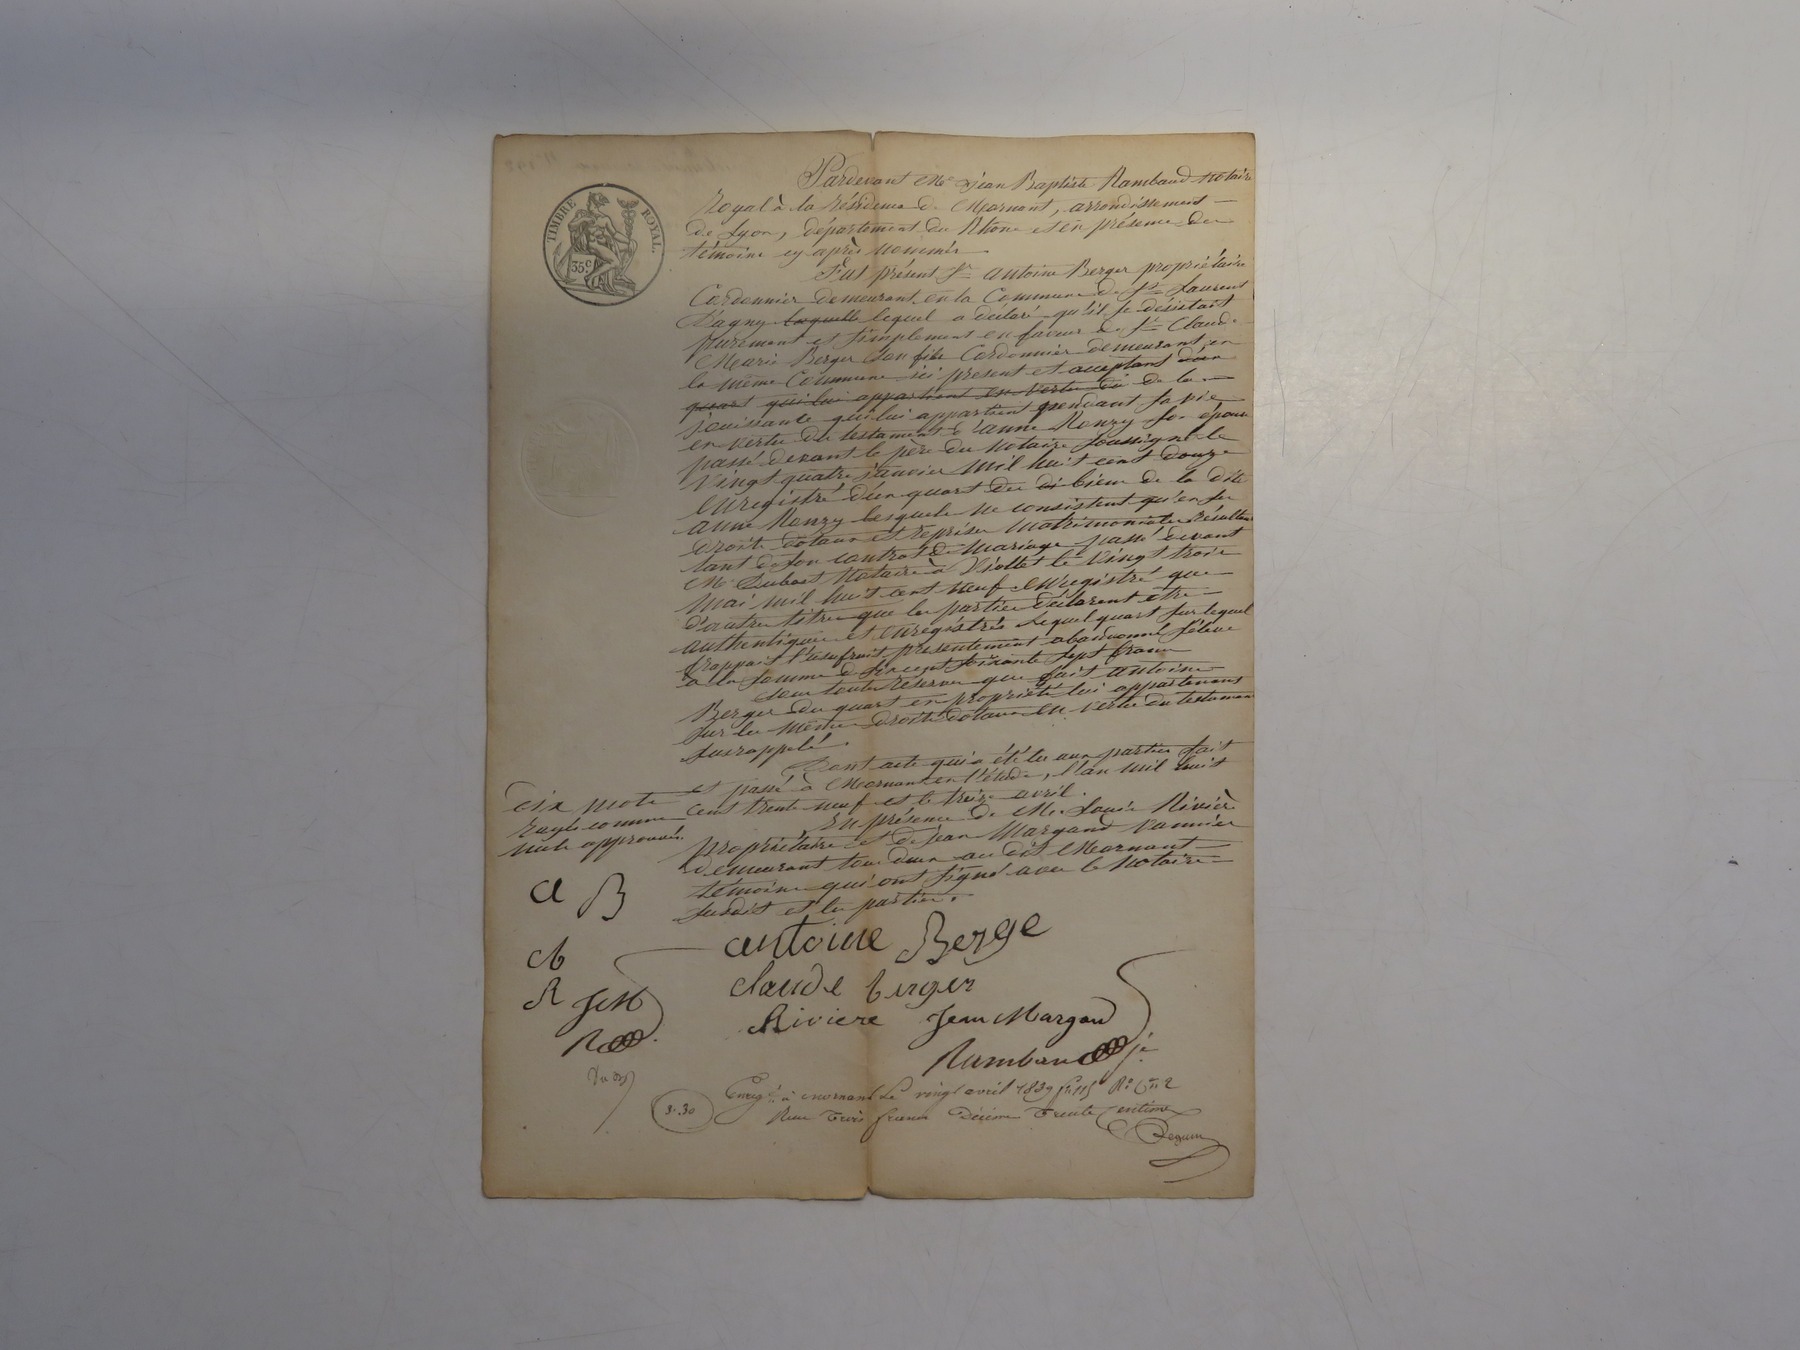 TIMBRE ROYAL.
35c
Pardevant Me Jean Baptiste Rambaud Notaire
Royal à la résidence de Mornant, arrondissement
de Lyon, département du Rhône et en présence des
témoins cy après nommés
Fut présent Sr antoine Berger propriétaire
Cordonnier demeurant en la Commune de St Laurent
D'agny laquelle lequel a déclaré qu'il se désistait
purement et simplement en faveur de Sr Claude
Marie Berger son fils Cordonnier demeurant en
la même Commune ici présent et acceptant d'un
quart qui lui appartient en vertu du de la
jouissance qui lui appartient pendant sa vie
en vertu du testament d'anne Ronzy son épouse
passé devant le père du Notaire soussigné le
vingt quatre janvier mil huit cent douze
enregistré d'un quart des di biens de la dite
anne Ronzy lesquels ne consistent qu'en ses
droits dotaux et reprises matrimoniales résul
tant de son contrat de mariage passé devant
Me Dubost Notaire à le vingt trois
mai mil huit cent neuf enregistré que
d'autres titres que les parties déclarent être
authentiques et enregistrés lequel quart sur lequel
frappait l'usufruit présentement abandonné s'élève
à la somme de cent soixante sept francs
Sous toutes réserves que fait antoine
Berger du quart en propriété lui appartenant
sur les mêmes droits dotaux en vertu du testament
susrappelé.
Dont acte qui a été lu aux parties fait
et passé à Mornant en l'étude, l'an mil huit
cent trente neuf et le treize avril.
En présence de Mr Louis Rivière
propriétaire et de Jean Margand vannier
demeurant tous deux au dit Mornant
témoins qui ont signé avec le Notaire
susdit et les parties.
dix mots
rayés comme
nuls approuvés
a B
cb
R JcM
R
antoine Berge
claude berger
Riviere Jean Margand
Rambaud
3.30
Enregé à mornant le vingt avril 1839
Reçu trois francs Décime trente centimes